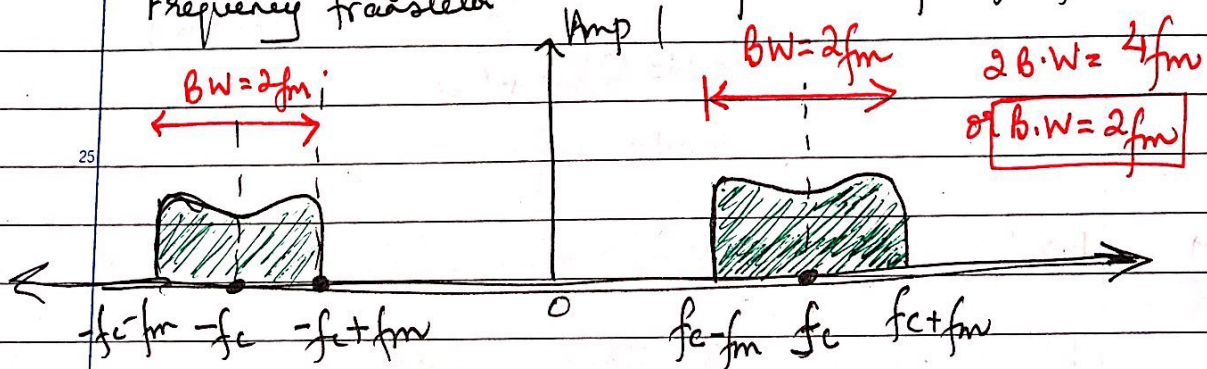 Frequency
Amp
BW=2fm
BW=2fm
2B.W= 4fm
or B.W=2fm
25
0
-fc-fm -fc -fc+fm
fc-fm fc fc+fm